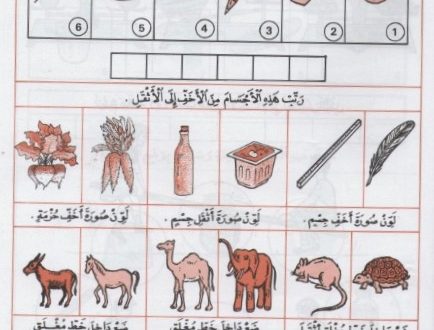 1 2 3 4 5 6
رَتِّبْ هَذِهِ الْأَجْسَامَ مِنَ الْأَخَفِّ إِلَى الْأَثْقَلِ .
لَوِّنْ صُورَةَ أَخَفِّ جِسْمٍ . لَوِّنْ صُورَةَ أَثْقَلِ جِسْمٍ . لَوِّنْ صُورَةَ أَخَفِّ حُزْمَةٍ .
ضَعْ دَاخِلَ خَطٍّ مُغْلَقٍ ضَعْ دَاخِلَ خَطٍّ مُغْلَقٍ